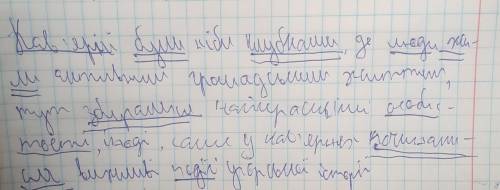 Кав'ярні були ніби клубками, де люди жи-
ли активним громадським життям,
тут збиралися найкращими особис-
тості, події, саме у кав'ярнях починали-
ся важливі події угорської історії